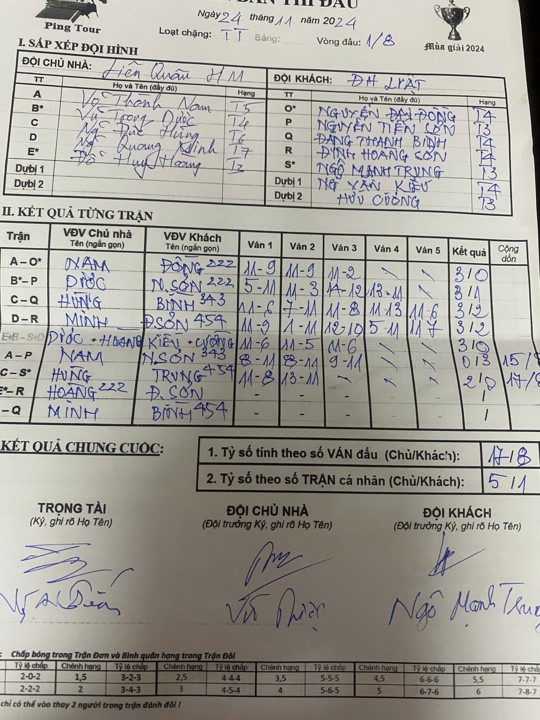 BẢN THI ĐẤU
Ping Tour
Ngày 24 tháng 11 năm 2024
Loại chặng: TT Bảng: Vòng đấu: 1/8
Mùa giải 2024
I. SẮP XẾP ĐỘI HÌNH
ĐỘI CHỦ NHÀ: Liên Quân HM
ĐỘI KHÁCH: ĐH LUẬT
TT Họ và Tên (đầy đủ) Hạng
TT Họ và Tên (đầy đủ) Hạng
A Vũ Thành Nam T5
B* Vũ Trọng Dược T4
C Ng Đức Hùng T6
D Ng Quang Minh T7
E* Đỗ Huy Hoàng T3
Dự bị 1
Dự bị 2
O* NGUYỄN ĐẠI ĐỒNG T4
P NGUYỄN TIẾN SƠN T3
Q ĐẶNG THANH BÌNH T4
R ĐINH HOÀNG SƠN T4
S* NGÔ MẠNH TRUNG T3
Dự bị 1 NG VĂN KIỀU T4
Dự bị 2 HỮU CƯỜNG T3
II. KẾT QUẢ TỪNG TRẬN
Trận VĐV Chủ nhà Tên (ngắn gọn) VĐV Khách Tên (ngắn gọn) Ván 1 Ván 2 Ván 3 Ván 4 Ván 5 Kết quả Cộng dồn
A – O* NAM ĐỒNG 222 11-9 11-9 11-2 \ \ 3/0
B* – P DƯỢC N.SƠN 222 5-11 11-3 14-12 13-11 \ 3/1
C – Q HÙNG BÌNH 343 11-6 7-11 11-8 11 13 11-6 3/2
D – R MINH Đ.SƠN 454 11-9 1-11 12-10 5-11 11 7 3/2
DƯỢC + HOÀNG KIỀU + CƯỜNG 11-6 11-5 11-6 3/0
A – P NAM N.SƠN 343 8-11 8-11 9-11 \ \ 0/3 15/8
C – S* HÙNG TRUNG 454 11-8 13-11 \ \ \ 2/0 17/8
E* – R HOÀNG 222 Đ.SƠN - - - /
– Q MINH BÌNH 454 - - - /
KẾT QUẢ CHUNG CUỘC:
1. Tỷ số tính theo số VÁN đấu (Chủ/Khách): 17/8
2. Tỷ số theo số TRẬN cá nhân (Chủ/Khách): 5/1
TRỌNG TÀI ĐỘI CHỦ NHÀ ĐỘI KHÁCH
(Ký, ghi rõ Họ Tên) (Đội trưởng Ký, ghi rõ Họ Tên) (Đội trưởng Ký, ghi rõ Họ Tên)
Ngô Mạnh Trung
Chấp bóng trong Trận Đơn và Bình quân hạng trong Trận Đôi
Tỷ lệ chấp Chênh hạng Tỷ lệ chấp Chênh hạng Tỷ lệ chấp Chênh hạng Tỷ lệ chấp Chênh hạng Tỷ lệ chấp Chênh hạng Tỷ lệ chấp
2-0-2 1,5 3-2-3 2,5 4-4-4 3,5 5-5-5 4,5 6-6-6 5,5 7-7-7
2-2-2 2 3-4-3 3 4-5-4 4 5-6-5 5 6-7-6 6 7-8-7
chỉ có thể vào thay 2 người trong trận đánh đôi !